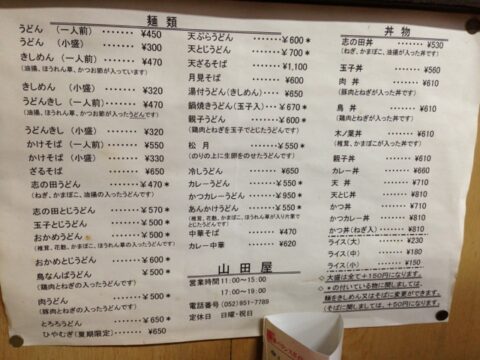 麺類
うどん (一人前) ‥‥‥ ¥450
うどん (小盛) ‥‥‥ ¥300
きしめん (一人前) ‥‥‥ ¥470
(油揚、ほうれん草、かつお節が入っています)
きしめん (小盛) ‥‥‥ ¥320
うどんきし (一人前) ‥‥‥ ¥470
(油揚、ほうれん草、かつお節が入ったうどんです)
うどんきし (小盛) ‥‥‥ ¥320
かけそば (一人前) ‥‥‥ ¥550
かけそば (小盛) ‥‥‥ ¥330
ざるそば ‥‥‥ ¥650
志の田うどん ‥‥‥ ¥470*
(ねぎ、かまぼこ、油揚の入ったうどんです)
志の田とじうどん ‥‥‥ ¥570*
玉子とじうどん ‥‥‥ ¥500*
おかめうどん ‥‥‥ ¥500*
(椎茸、花麩、かまぼこ、ほうれん草の入ったうどんです)
おかめとじうどん ‥‥‥ ¥600*
鳥なんばうどん ‥‥‥ ¥550*
(鶏肉とねぎの入ったうどんです)
肉うどん ‥‥‥ ¥550*
(豚肉とねぎが入ったうどんです)
とろろうどん ‥‥‥ ¥650*
ひやむぎ(夏期限定) ‥‥‥ ¥650
天ぷらうどん ‥‥‥ ¥600*
天とじうどん ‥‥‥ ¥700*
天ざるそば ‥‥‥ ¥1,100
月見そば ‥‥‥ ¥600
湯付うどん(きしめん) ‥‥‥ ¥650
鍋焼きうどん(玉子入) ‥‥‥ ¥670*
親子うどん ‥‥‥ ¥600*
(鶏肉とねぎを玉子でとじたうどんです)
松月 ‥‥‥ ¥550*
(のりの上に生卵をのせたうどんです)
冷しうどん ‥‥‥ ¥650
カレーうどん ‥‥‥ ¥550*
かつカレーうどん ‥‥‥ ¥950*
あんかけうどん ‥‥‥ ¥550*
(椎茸、花麩、かまぼこ、ほうれん草が入り片栗でとじたうどんです)
中華そば ‥‥‥ ¥470
カレー中華 ‥‥‥ ¥620
山田屋
営業時間 11:00〜15:00
17:00〜19:00
電話番号 (052)851-7789
定休日 日曜・祝日
丼物
志の田丼 ‥‥‥ ¥530
(ねぎ、かまぼこ、油揚が入った丼です)
玉子丼 ‥‥‥ ¥560
肉丼 ‥‥‥ ¥610
(豚肉とねぎが入った丼です)
鳥丼 ‥‥‥ ¥610
(鶏肉とねぎが入った丼です)
木ノ葉丼 ‥‥‥ ¥610
(椎茸、かまぼこが入った丼です)
親子丼 ‥‥‥ ¥610
カレー丼 ‥‥‥ ¥660
天丼 ‥‥‥ ¥710
天とじ丼 ‥‥‥ ¥810
かつ丼 ‥‥‥ ¥710
かつカレー丼 ‥‥‥ ¥810
かつ丼(ねぎ入) ‥‥‥ ¥810
ライス(大) ‥‥‥ ¥230
ライス(中) ‥‥‥ ¥180
ライス(小) ‥‥‥ ¥150
◇大盛は全て+150円になります。
◇*の付いている物に関しましては、
麺をきしめん又はそばに変更ができます。
(そばに関しましては、+150円になります。)